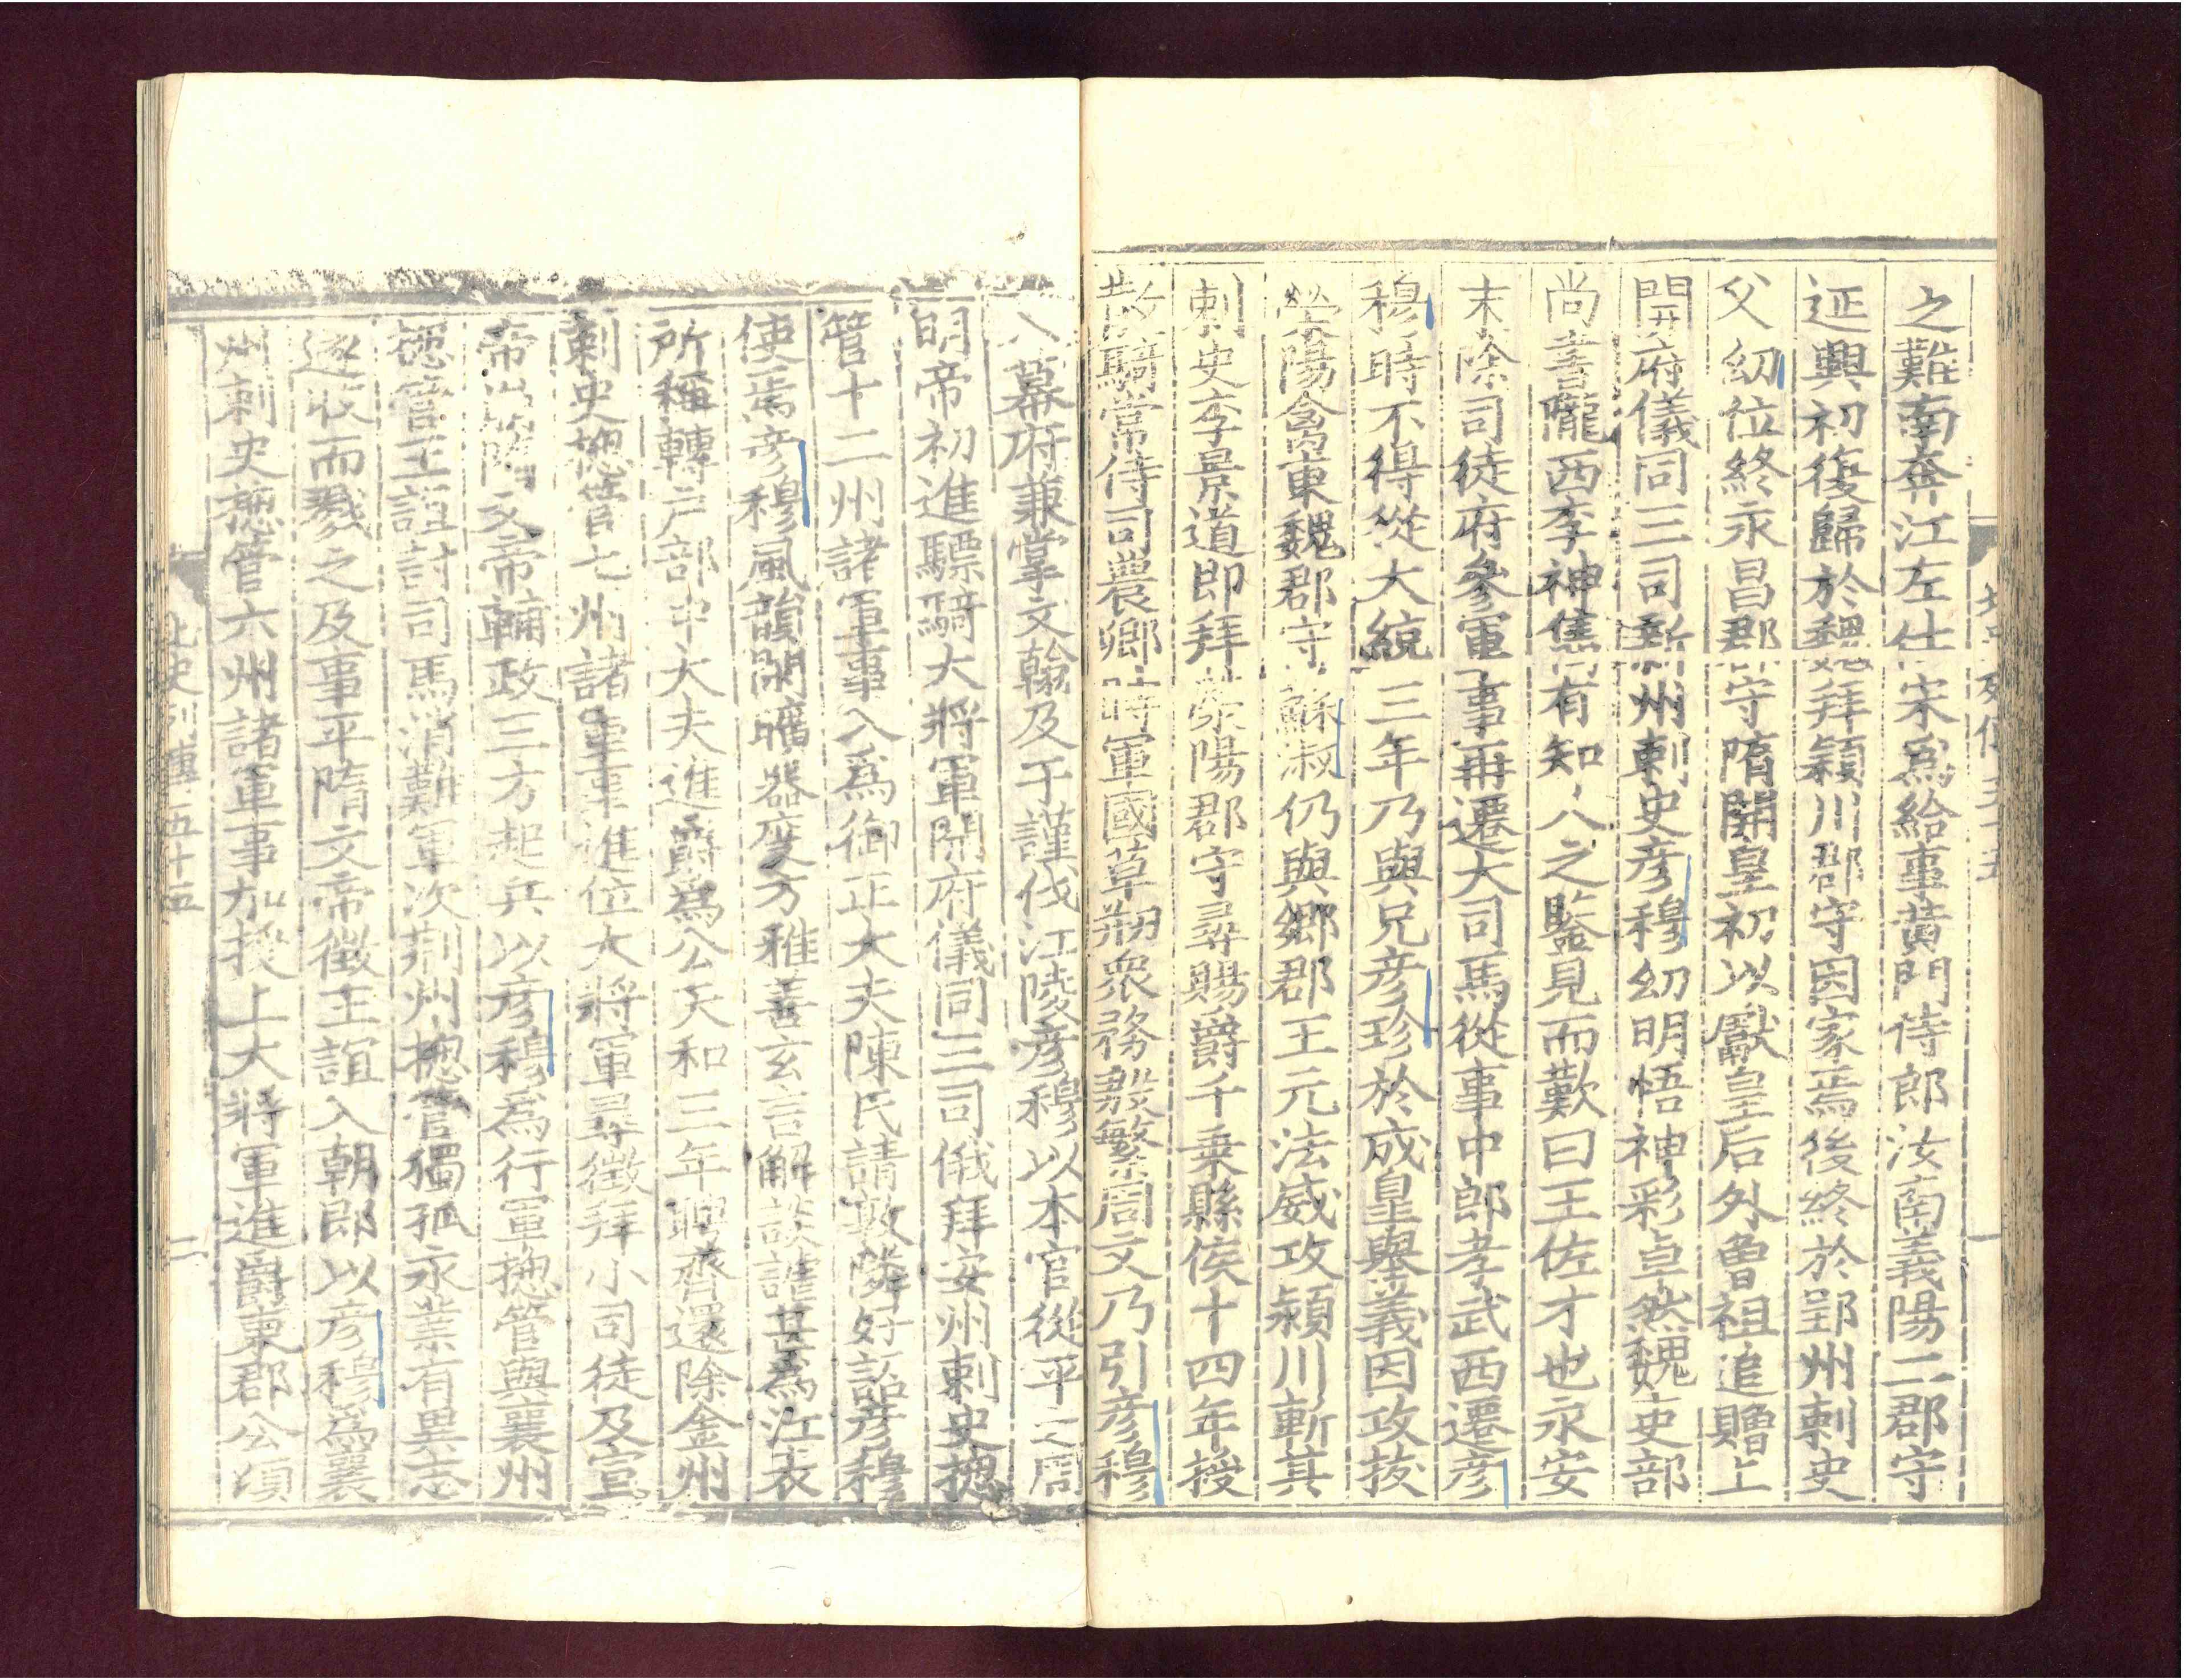 之難南奔江左仕宋爲給事黃門侍郎汝南義陽二郡守
延興初復歸於魏拜潁川郡守因家焉後終於郢州刺史
父幼位終永昌郡守隋開皇初以獻皇后外魯祖追贈上
開府儀同三司新州刺史彥穆幼明悟神彩卓然魏吏部
尚書隴西李神儁有知人之鑒見而歎曰王佐才也永安
末除司徒府參軍事再遷大司馬從事中郎孝武西遷彥
穆時不得從大統三年乃與兄彥珍於成皇舉義因攻拔
滎陽禽東魏郡守蘇淑仍與鄉郡王元法威攻潁川斬其
刺史李景道即拜滎陽郡守尋賜爵千乗縣侯十四年授
散騎常侍司農卿時軍國草刱衆務殷繁周文乃引彥穆
入幕府兼掌文翰及于謹伐江陵彥穆以本官從平之周
明帝初進驃騎大將軍開府儀同三司俄拜安州刺史揔
管十二州諸軍事入爲御正大夫陳氏請敦隣好詔彥穆
使焉彥穆風韻閑曠器度方雅善玄言解談謔甚爲江表
所稱轉戶部中大夫進爵爲公天和三年聘齊還除金州
刺史揔管七州諸軍事進位大將軍尋徵拜小司徒及宣
帝崩隋文帝輔政三方起兵以彥穆爲行軍揔管與襄州
揔管王誼討司馬消難軍次荊州揔管獨孤永業有異志
遂收而戮之及事平隋文帝徵王誼入朝即以彥穆爲襄
州刺史揔管六州諸軍事加授上大將軍進爵東郡公頃
北史列傳五十五
二